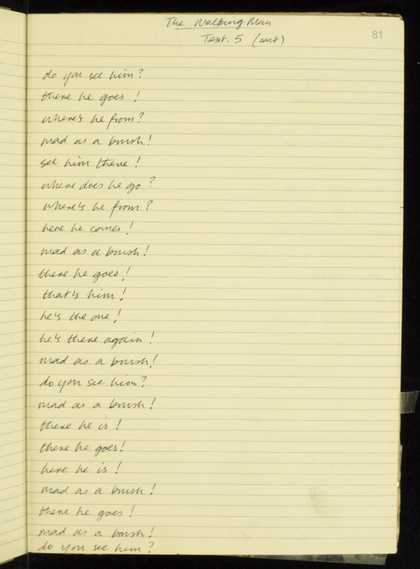 The Walking Man
Text. 5 (cont)
81
do you see him?
there he goes!
where's he from?
mad as a brush!
see him there!
where does he go?
where's he from?
here he comes!
mad as a brush!
there he goes!
that's him!
he's the one!
he's there again!
mad as a brush!
do you see him?
mad as a brush!
there he is!
there he goes!
here he is!
mad as a brush!
there he goes!
mad as a brush!
do you see him?